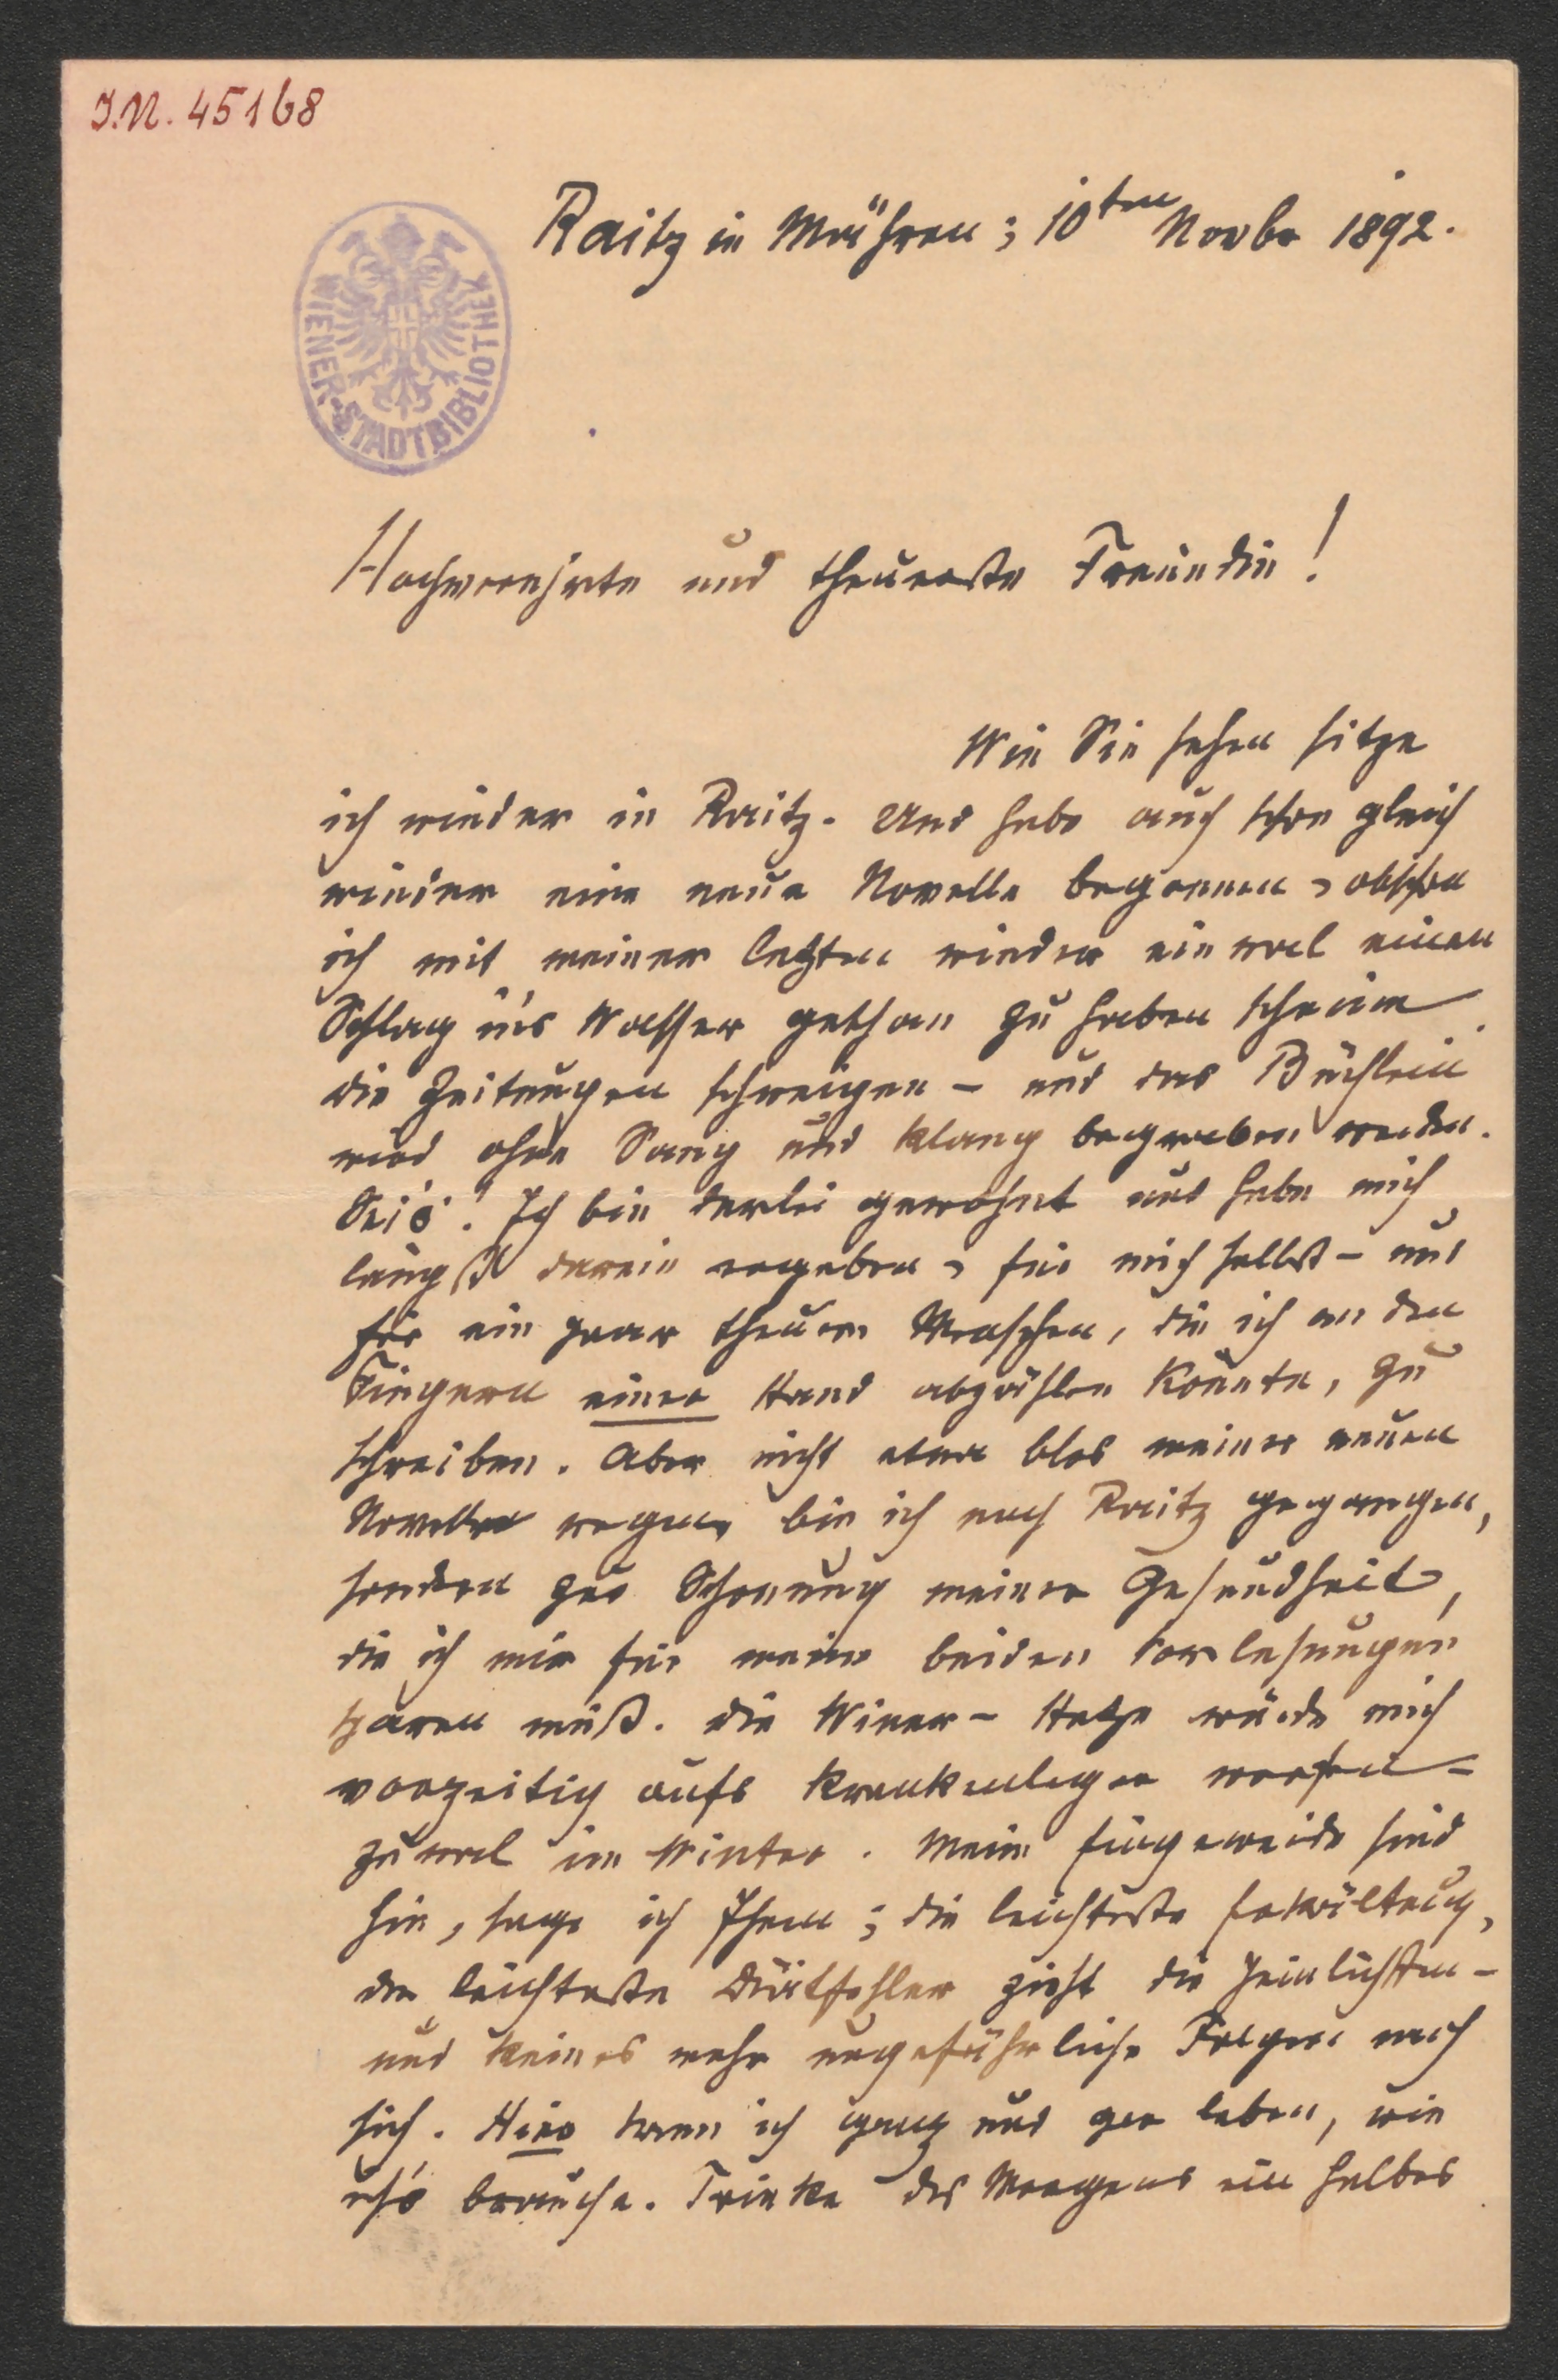 I.N. 45168
Raitz in Mähren; 10ten Novbr 1892.
WIENER-STADTBIBLIOTHEK
Hochverehrte und theuerste Freundin!
Wie Sie sehen sitze
ich wieder in Raitz. Und habe auch schon gleich
wieder eine neue Novelle begonnen, obschon
ich mit meiner letzten wieder einmal einen
Schlag in's Wasser gethan zu haben scheine.
die Zeitungen schweigen – und das Büchlein
wird ohne Sang und Klang begraben werden.
Sei's! Ich bin derlei gewohnt und habe mich
längst darein ergeben, für mich selbst – und
für ein paar theure Menschen, die ich an den
Fingern einer Hand abzählen könnte, zu
schreiben. Aber nicht etwa blos meiner neuen
Novelle wegen bin ich nach Raitz gegangen,
sondern zur Schonung meiner Gesundheit,
die ich mir für meine beiden Vorlesungen
sparen muß. Die Wiener-Hetze würde mich
vorzeitig aufs Krankenlager werfen –
zumal im Winter. Meine Eingeweide sind
hin, sage ich Ihnen; die leichteste Erkältung,
der leichteste Diätfehler zieht die peinlichsten –
und keines mehr ungefährliche Folgen nach
sich. Hier kann ich ganz und gar leben, wie
ich's brauche. Trinke des Morgens ein halbes